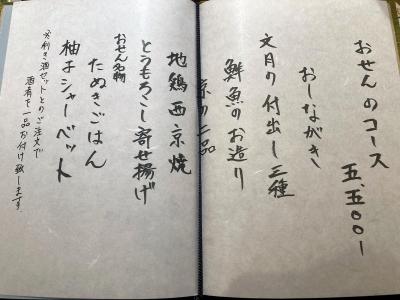 おせんのコース
五、五〇〇-
おしながき
文月の付出し三種
鮮魚のお造り
京の一品
地鶏西京焼
とうもろこし寄せ揚げ
おせん名物
たぬきごはん
柚子シャーベット
※利き酒セットとのご注文で
酒肴を一品お付け致します